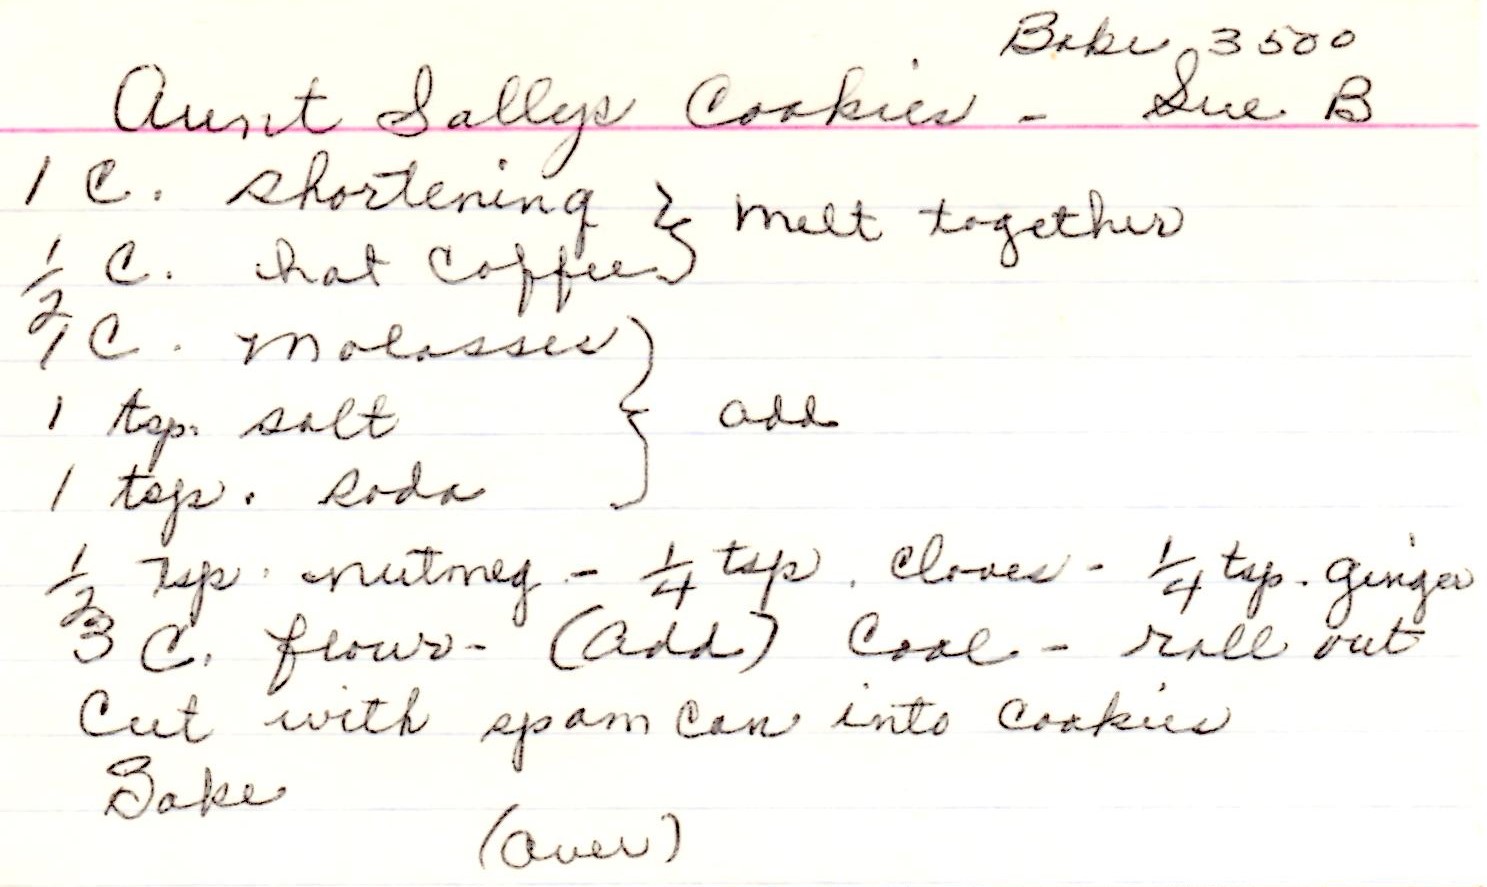 Bake 350°
Aunt Sallys Cookies - Sue B
1 C. shortening } melt together
1/2 C. hot coffee
1 C. molasses
1 tsp. salt } add
1 tsp. soda
1/2 Tsp. nutmeg - 1/4 tsp. cloves - 1/4 tsp. ginger
3 C. flour - (add) Cool - roll out
Cut with spam can into cookies
Bake
(over)